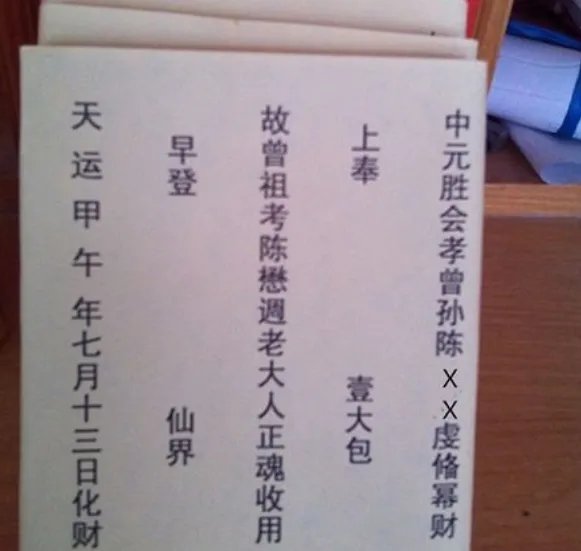 中元胜会孝曾孙陈XX虔俻幂财
上奉 壹大包
故曾祖考陈懋週老大人正魂收用
早登 仙界
天运甲午年七月十三日化财